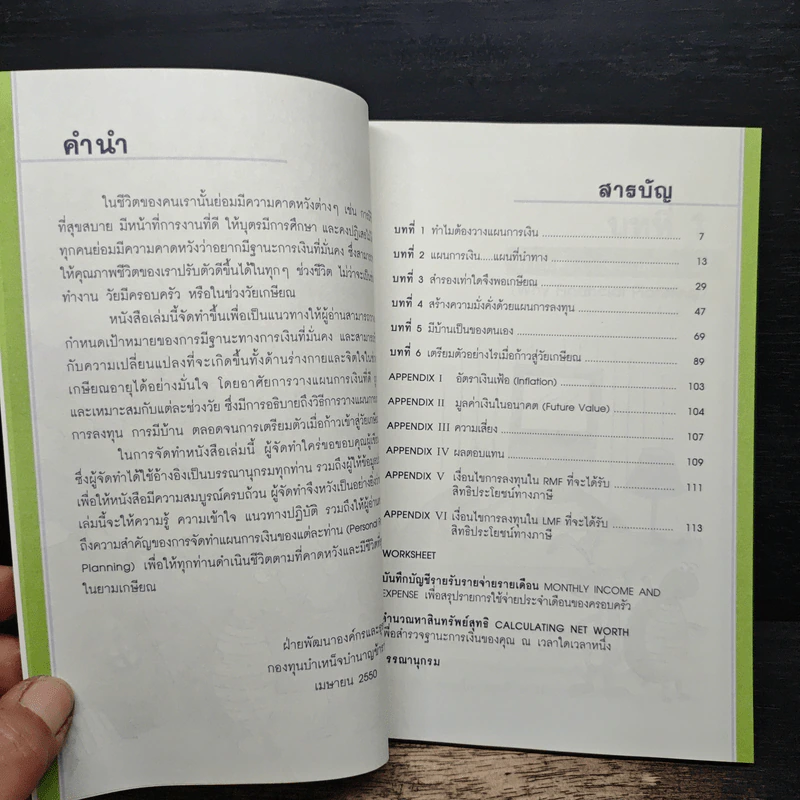 คำนำ
ในชีวิตของคนเรานั้นย่อมมีความคาดหวังต่างๆ เช่น
ที่สุขสบาย มีหน้าที่การงานที่ดี ให้บุตรมีการศึกษา และคงปฏิเสธไม่
ทุกคนย่อมมีความคาดหวังว่าอยากมีฐานะการเงินที่มั่นคง ซึ่งสามาร
ให้คุณภาพชีวิตของเราปรับตัวดีขึ้นได้ในทุกๆ ช่วงชีวิต ไม่ว่าจะเป็น
ทำงาน วัยมีครอบครัว หรือในช่วงวัยเกษียณ
หนังสือเล่มนี้จัดทำขึ้นเพื่อเป็นแนวทางให้ผู้อ่านสามารถ
กำหนดเป้าหมายของการมีฐานะทางการเงินที่มั่นคง และสามาร
กับความเปลี่ยนแปลงที่จะเกิดขึ้นทั้งด้านร่างกายและจิตใจใน
เกษียณอายุได้อย่างมั่นใจ โดยอาศัยการวางแผนการเงินที่ดี
และเหมาะสมกับแต่ละช่วงวัย ซึ่งมีการอธิบายถึงวิธีการวางแผนกา
การลงทุน การมีบ้าน ตลอดจนการเตรียมตัวเมื่อก้าวเข้าสู่วัยเกษีย
ในการจัดทำหนังสือเล่มนี้ ผู้จัดทำใคร่ขอขอบคุณผู้เขีย
ซึ่งผู้จัดทำได้ใช้อ้างอิงเป็นบรรณานุกรมทุกท่าน รวมถึงผู้ให้ข้อมูล
เพื่อให้หนังสือมีความสมบูรณ์ครบถ้วน ผู้จัดทำจึงหวังเป็นอย่างยิ่ง
เล่มนี้จะให้ความรู้ ความเข้าใจ แนวทางปฏิบัติ รวมถึงให้ผู้อ่าน
ถึงความสำคัญของการจัดทำแผนการเงินของแต่ละท่าน (Personal
Planning) เพื่อให้ทุกท่านดำเนินชีวิตตามที่คาดหวังและมีชีวิต
ในยามเกษียณ
ฝ่ายพัฒนาองค์กรและ
กองทุนบำเหน็จบำนาญข้า
เมษายน 2550
สารบัญ
บทที่ 1 ทำไมต้องวางแผนการเงิน 7
บทที่ 2 แผนการเงิน.....แผนที่นำทาง 13
บทที่ 3 สำรองเท่าใดจึงพอเกษียณ 29
บทที่ 4 สร้างความมั่งคั่งด้วยแผนการลงทุน 47
บทที่ 5 มีบ้านเป็นของตนเอง 69
บทที่ 6 เตรียมตัวอย่างไรเมื่อก้าวสู่วัยเกษียณ 89
APPENDIX I อัตราเงินเฟ้อ (Inflation) 103
APPENDIX II มูลค่าเงินในอนาคต (Future Value) 104
APPENDIX III ความเสี่ยง 107
APPENDIX IV ผลตอบแทน 109
APPENDIX V เงื่อนไขการลงทุนใน RMF ที่จะได้รับ 111
สิทธิประโยชน์ทางภาษี
APPENDIX VI เงื่อนไขการลงทุนใน LMF ที่จะได้รับ 113
สิทธิประโยชน์ทางภาษี
WORKSHEET
บันทึกบัญชีรายรับรายจ่ายรายเดือน MONTHLY INCOME AND
EXPENSE เพื่อสรุปรายการใช้จ่ายประจำเดือนของครอบครัว
คำนวณหาสินทรัพย์สุทธิ CALCULATING NET WORTH
เพื่อสำรวจฐานะการเงินของคุณ ณ เวลาใดเวลาหนึ่ง
รรณานุกรม